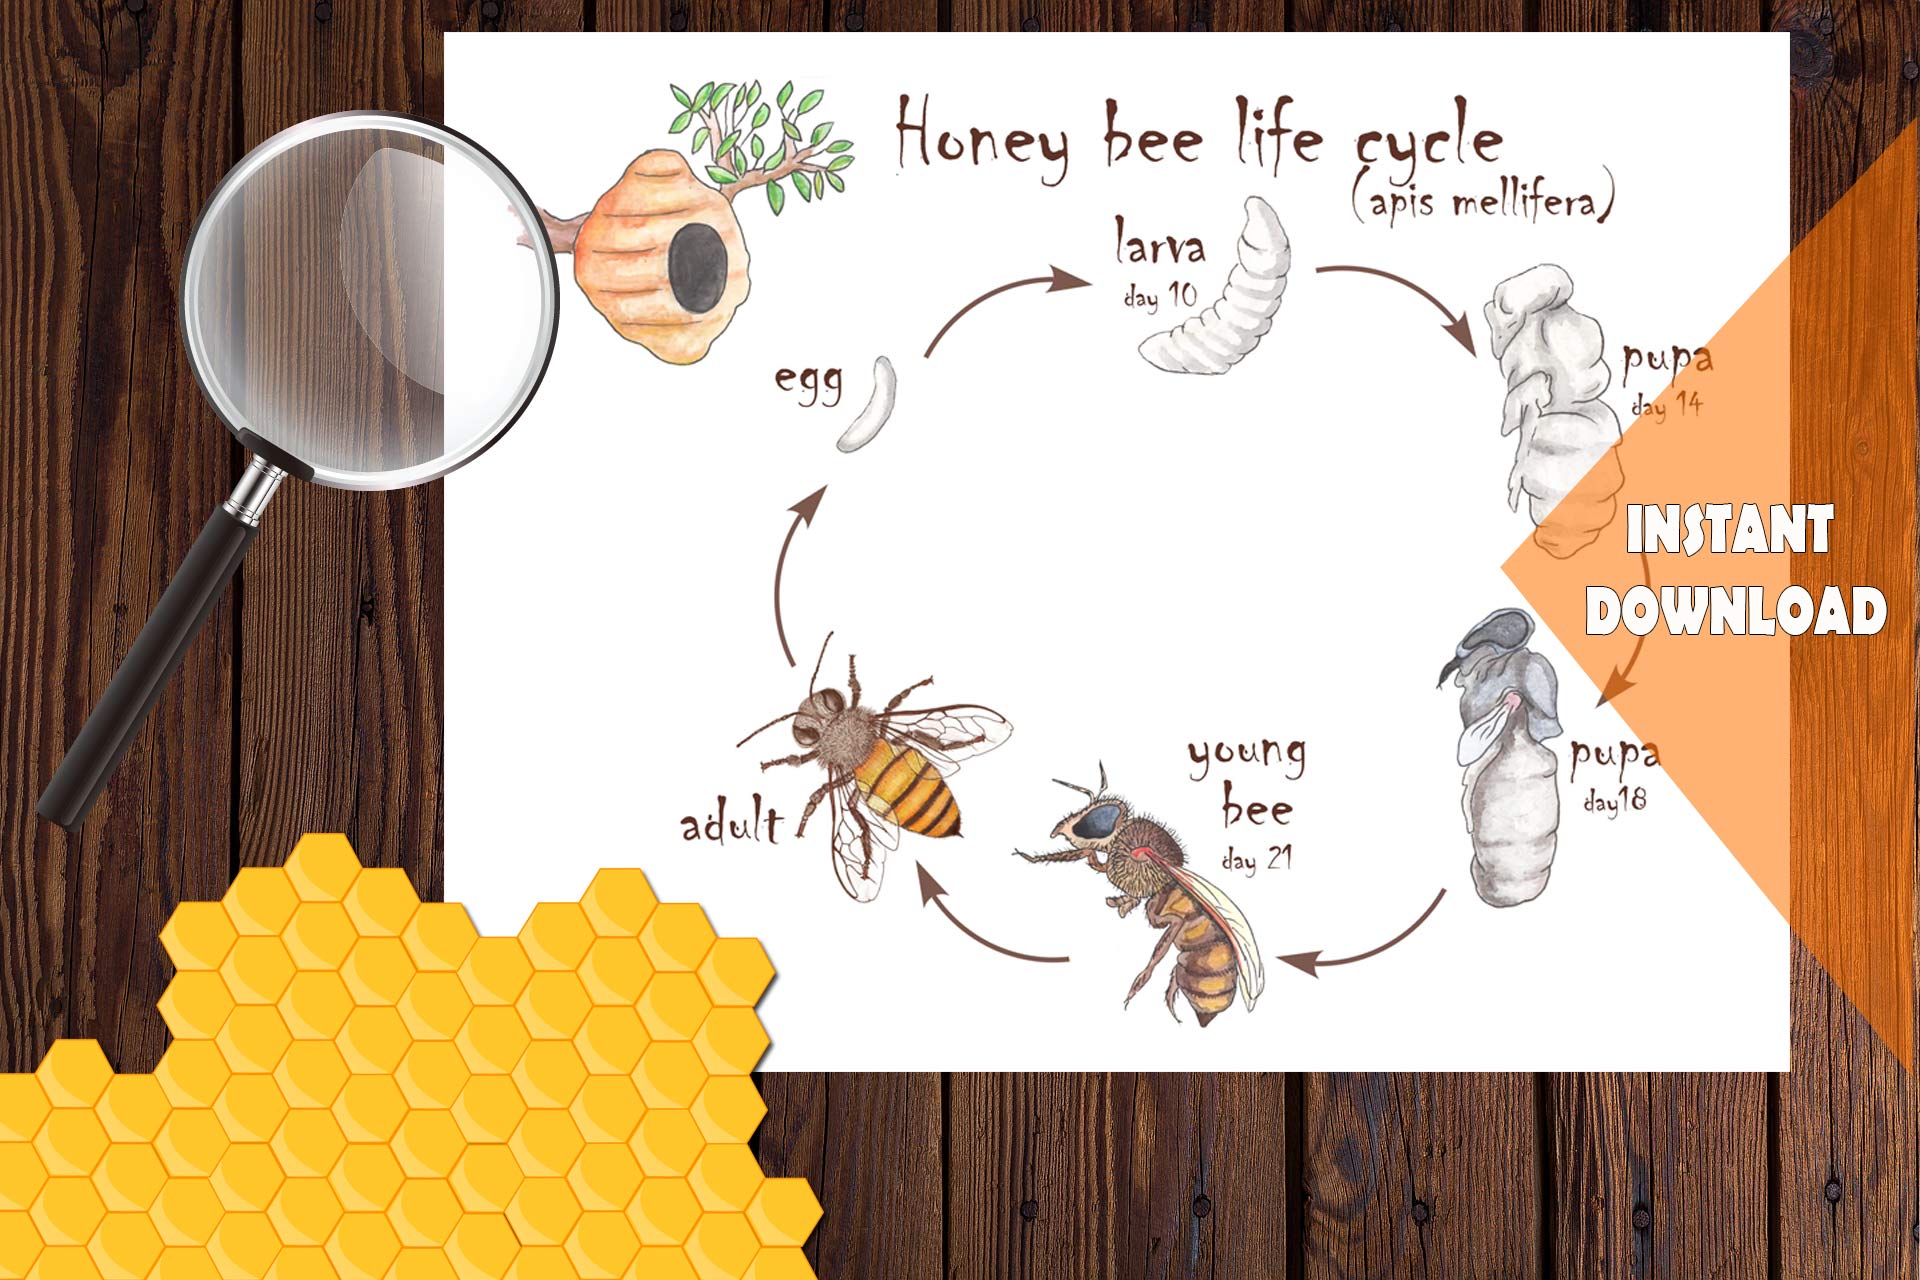 Honey bee life cycle
(apis mellifera)
larva
day 10
egg
pupa
day 14
INSTANT
DOWNLOAD
pupa
day18
young
bee
day 21
adult